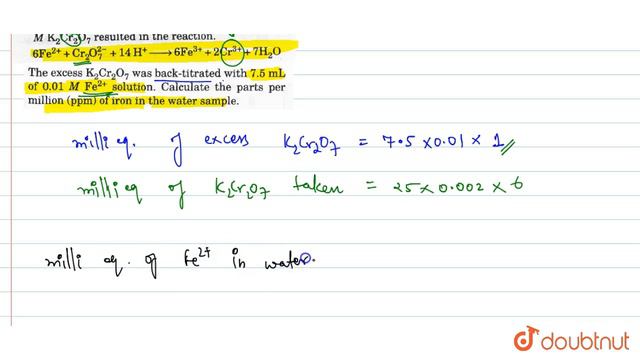 M K₂Cr₂O₇ resulted in the reaction.
6Fe²⁺ + Cr₂O₇²⁻ + 14 H⁺ ⟶ 6Fe³⁺ + 2Cr³⁺ + 7H₂O
The excess K₂Cr₂O₇ was back-titrated with 7.5 mL
of 0.01 M Fe²⁺ solution. Calculate the parts per
million (ppm) of iron in the water sample.
milli eq. of excess K₂Cr₂O₇ = 7.5 × 0.01 × 1
milli eq of K₂Cr₂O₇ taken = 25 × 0.002 × 6
milli eq. of Fe²⁺ in water.
doubtnut